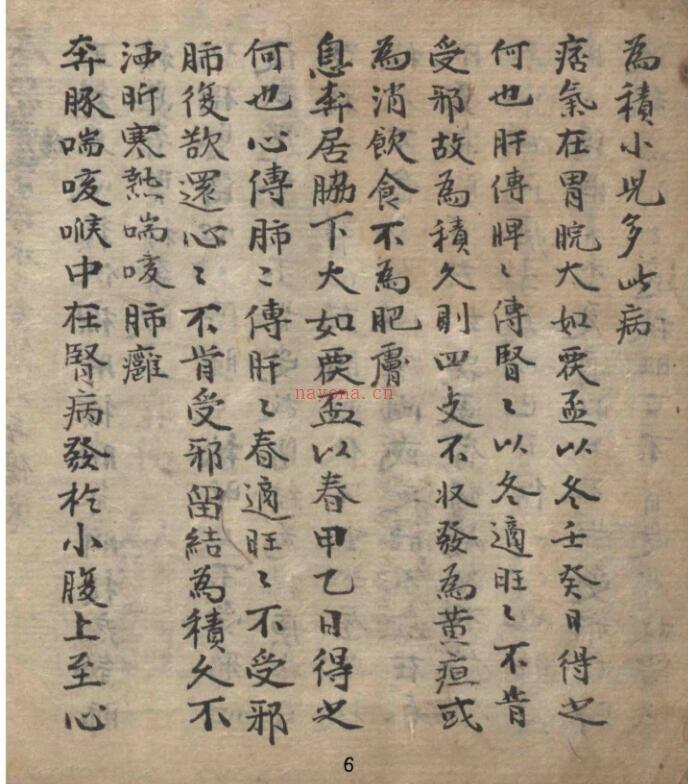 為積小兒多此病
痞氣在胃脘大如覆盃以冬壬癸日得之
何也肝傳脾〻傳腎〻以冬適旺〻不肯
受邪故為積久則四支不收發為黃疸或
為消飲食不為肥膚
息奔居脇下大如覆盃以春甲乙日得之
何也心傳肺〻傳肝〻春適旺〻不受邪
肺復欲還心〻不肯受邪留結為積久不
洒昕寒熱喘咳肺癰
奔豚喘咳喉中在腎病發於小腹上至心
nayona.cn
6